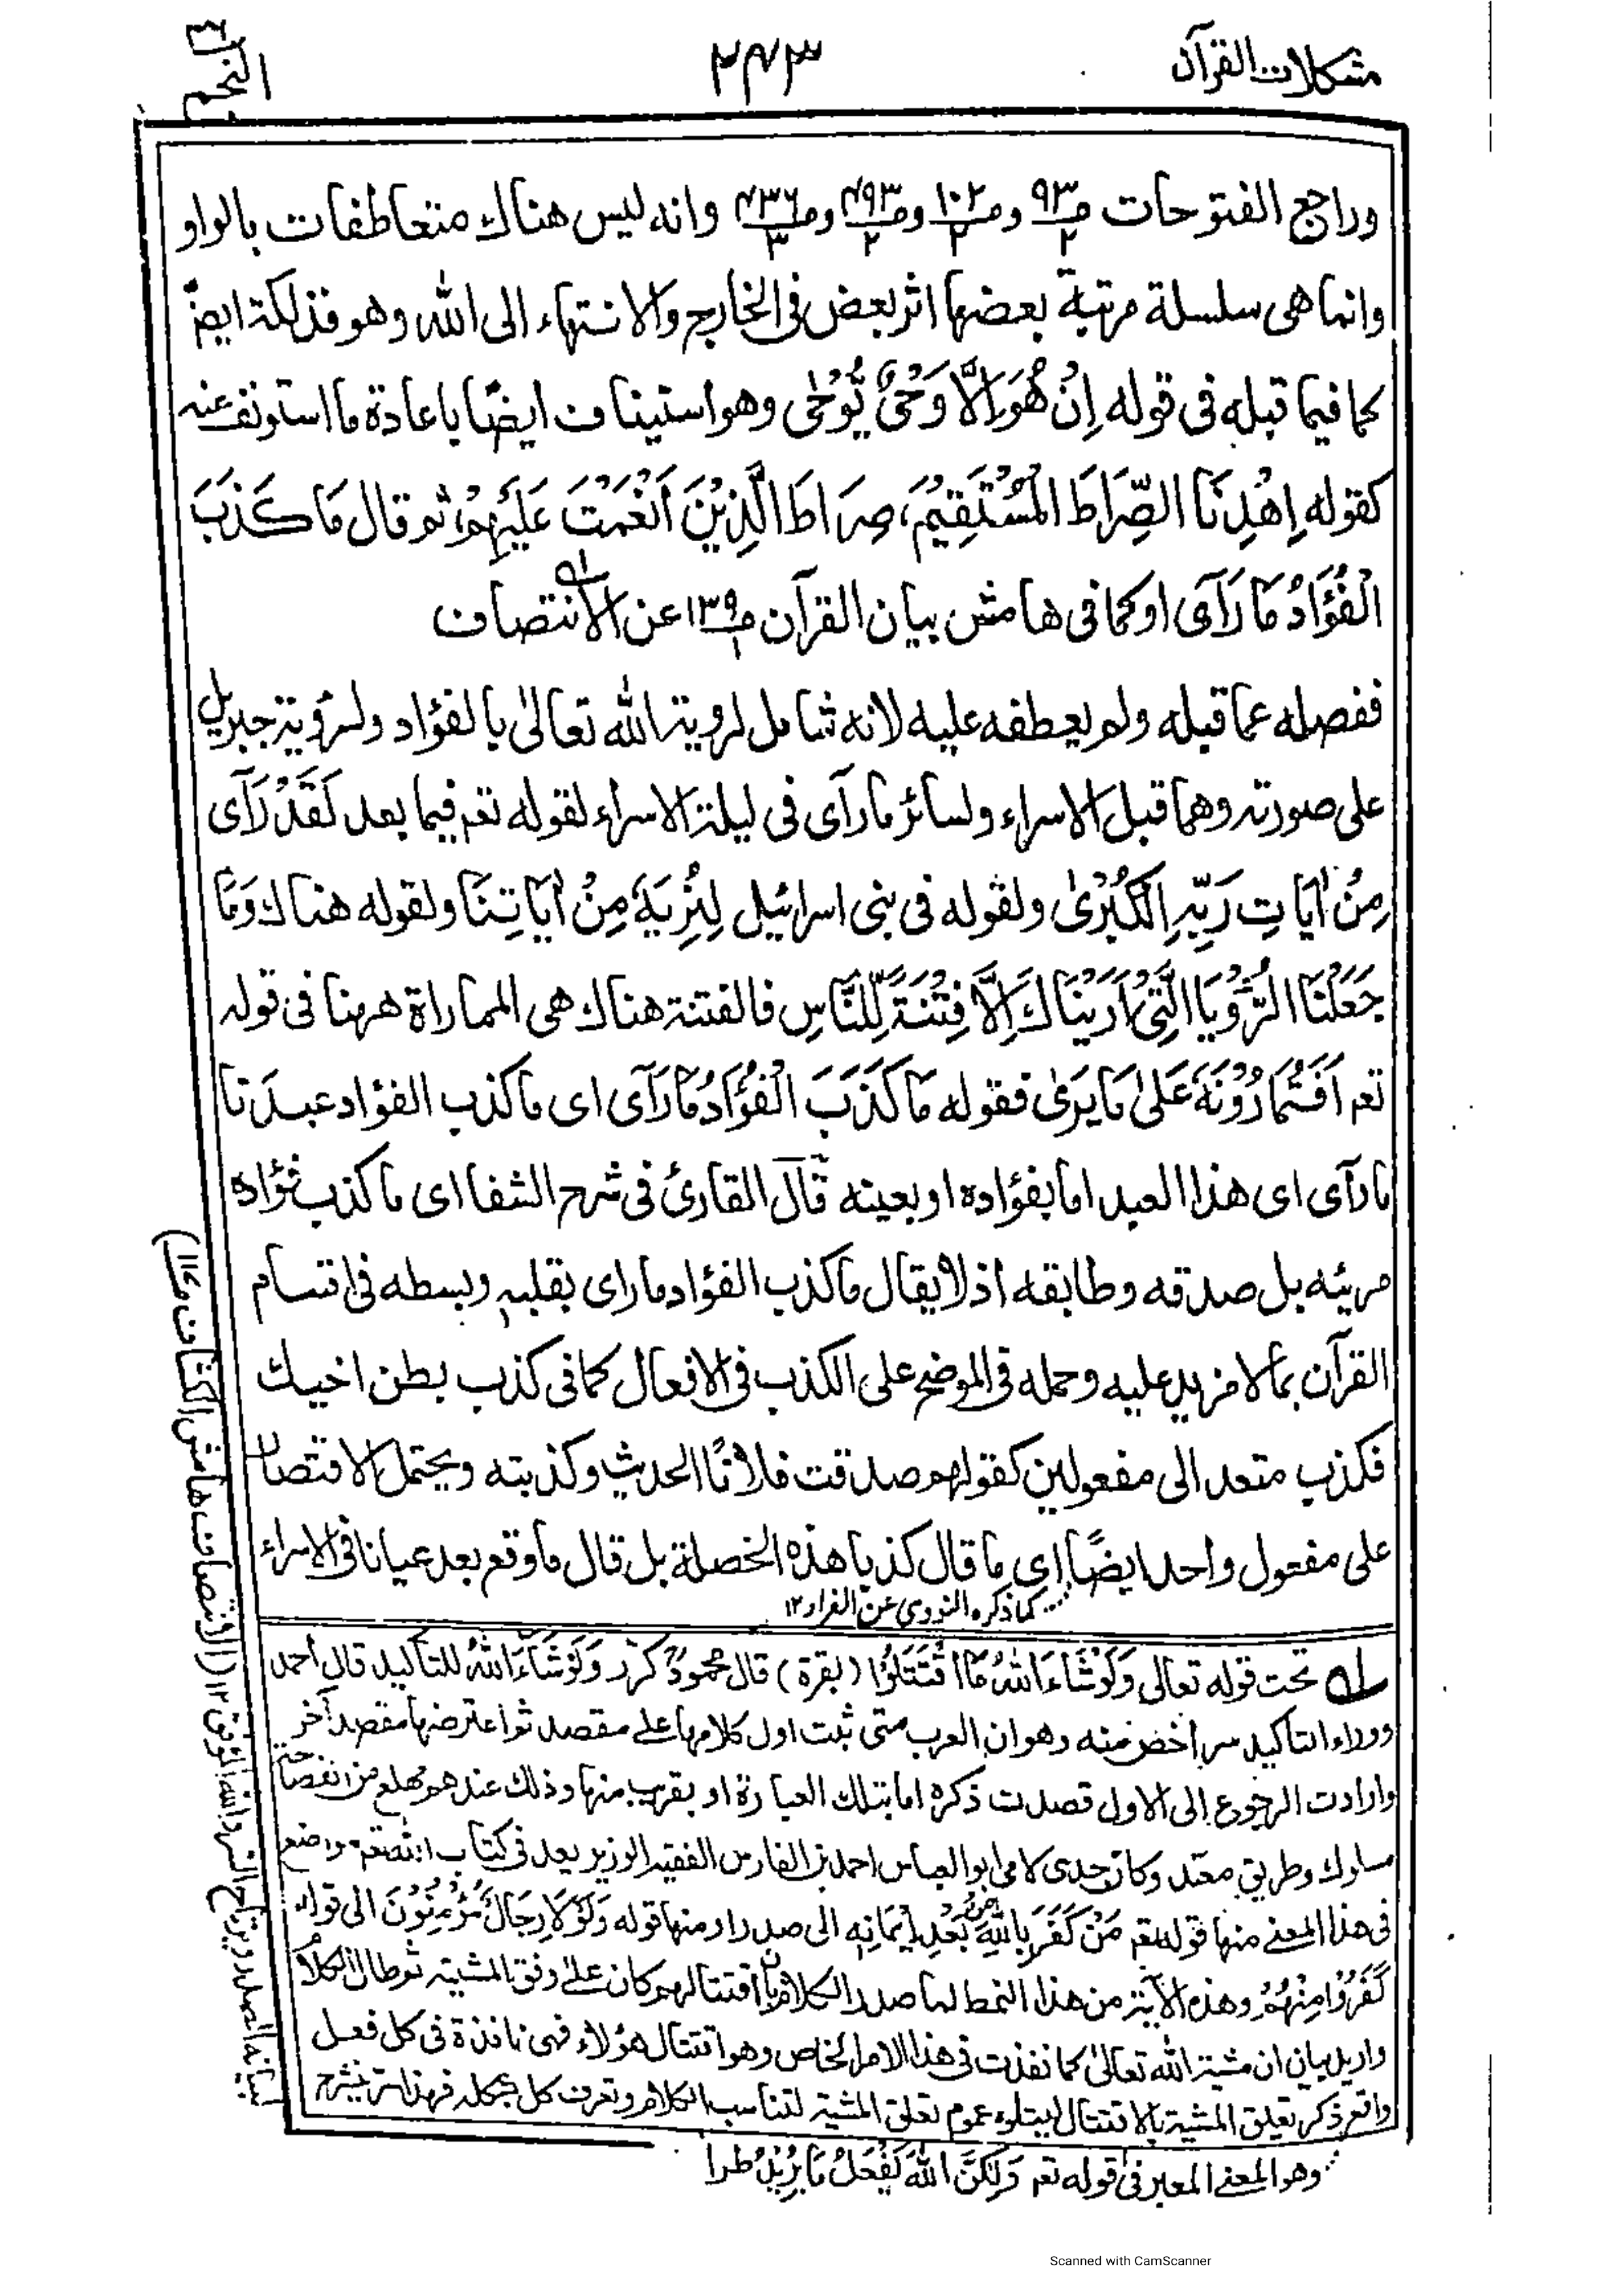 مشكلات القرآن
٢٤٣
النجم
وراجع الفتوحات ص٩٣/٢ وص١٠٢/٢ وص٤٩٣/٢ وص٤٣٦/٣ وانه ليس هناك متعاطفات بالواو
وانما هى سلسلة مرتبة بعضها اثر بعض فى الخارج والانتهاء الى الله وهو فذلكة ايضً
كما فيما قبله فى قوله اِنْ هُوَ اِلَّا وَحْىٌ يُّوْحٰى وهو استيناف ايضًا باعادة ما استونف عنه
كقوله اِهْدِنَا الصِّرَاطَ الْمُسْتَقِيْمَ، صِرَاطَ الَّذِيْنَ اَنْعَمْتَ عَلَيْهِمْ، ثم قال مَا كَذَبَ
الْفُؤَادُ مَا رَآى او كما فى هامش بيان القرآن ص١٣٩/١ عن الانتصاف
ففصله عما قبله ولم يعطفه عليه لانه شامل لروية الله تعالىٰ بالفؤاد ولرؤية جبريل
على صورته وهما قبل الاسراء ولسائر ما رآى فى ليلة الاسراء لقوله تعم فيما بعد لَقَدْ رَآى
مِنْ اٰيَاتِ رَبِّهِ الْكُبْرٰى ولقوله فى بنى اسرائيل لِنُرِيَهٗ مِنْ اٰيَاتِنَا ولقوله هناك وَمَا
جَعَلْنَا الرُّؤْيَا الَّتِىْ اَرَيْنَاكَ اِلَّا فِتْنَةً لِّلنَّاسِ فالفتنة هناك هى المماراة ههنا فى قوله
تعم اَفَتُمَارُوْنَهٗ عَلٰى مَا يَرٰى فقوله مَا كَذَبَ الْفُؤَادُ مَا رَآى اى ما كذب الفؤاد عبدَنا
ما رآى اى هذا العبد اما بفؤاده او بعينه قال القارئ فى شرح الشفا اى ما كذب فؤاده
مرئيه بل صدقه وطابقه اذ لا يقال ما كذب الفؤاد ما راى بقلبه وبسطه فى اقسام
القرآن بما لا مزيد عليه وحمله فى الموضح على الكذب فى الافعال كما فى كذب بطن اخيك
فكذب متعد الى مفعولين كقولهم صدقت فلانًا الحديث وكذبته ويحتمل الاقتصار
على مفعول واحد ايضًا اى ما قال كذبا هذه الخصلة بل قال ما وقع بعد عيانا فى الاسراء
كما ذكره النووى عن الفراء ١٢
له تحت قوله تعالى وَلَوْشَاءَ اللهُ مَا اقْتَتَلُوْا (بقرة) قال محمودٌ كرر وَلَوْشَاءَ اللهُ للتاكيد قال احمد
ووراء التاكيد سر اخص منه وهو ان العرب متى ثبت اول كلامها على مقصد ثم اعترضها مقصد آخر
وارادت الرجوع الى الاول قصدت ذكره اما بتلك العبارة او بقريب منها وذلك عندهم مهيع من الفصاحة
مسلوك وطريق معتد وكان جدى لامى ابو العباس احمد بن الفارس الفقيه الوزير يعد فى كتاب الله تعم مواضع
فى هذا المعنى منها قوله تعم مَنْ كَفَرَ بِاللهِ مِنْ بَعْدِ اِيْمَانِهٖ الى صدرا ومنها قوله وَلَوْلَا رِجَالٌ مُّؤْمِنُوْنَ الى قوله
كَفَرُوْا مِنْهُمْ وهذه الآية من هذا النمط لما صدر الكلام بان اقتتالهم كان على وفق المشية ثم طال الكلام
واريد بيان ان مشية الله تعالىٰ كما نفذت فى هذا الامر الخاص وهو اقتتال هؤلاء فهى نافذة فى كل فعل
واقع ذكر تعلق المشية بالاقتتال ليتلوه عموم تعلق المشية لتناسب الكلام وتعرف كل بشكله فهذا سر ينشرح
وهو المعنى المعبر فى قوله تعم وَلٰكِنَّ اللهَ يَفْعَلُ مَا يُرِيْدُ طرا
لبيانه الصدر ويرتاح السر والله الموفق ١٢ (الانتصاف هامش الكشاف
Scanned with CamScanner